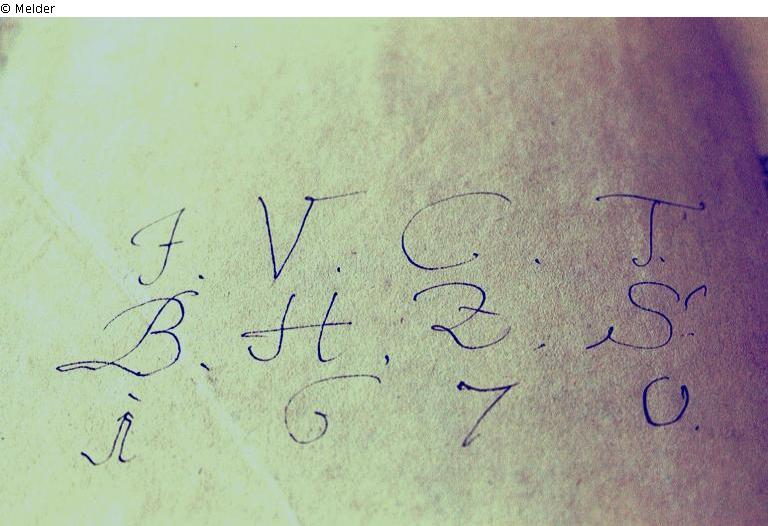 © Melder
J. V. C. T.
B. H. Z. S.
1 6 7 0.